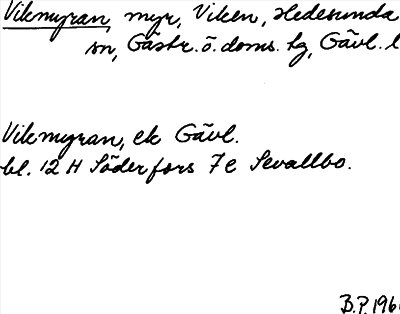 Vikmyran, myr, Viken, Hedesunda
sn, Gästr. ö. doms. hg, Gävl. l
Vikmyran, ek Gävl.
bl. 12 H Söderfors 7 e Sevallbo.
B.P. 196